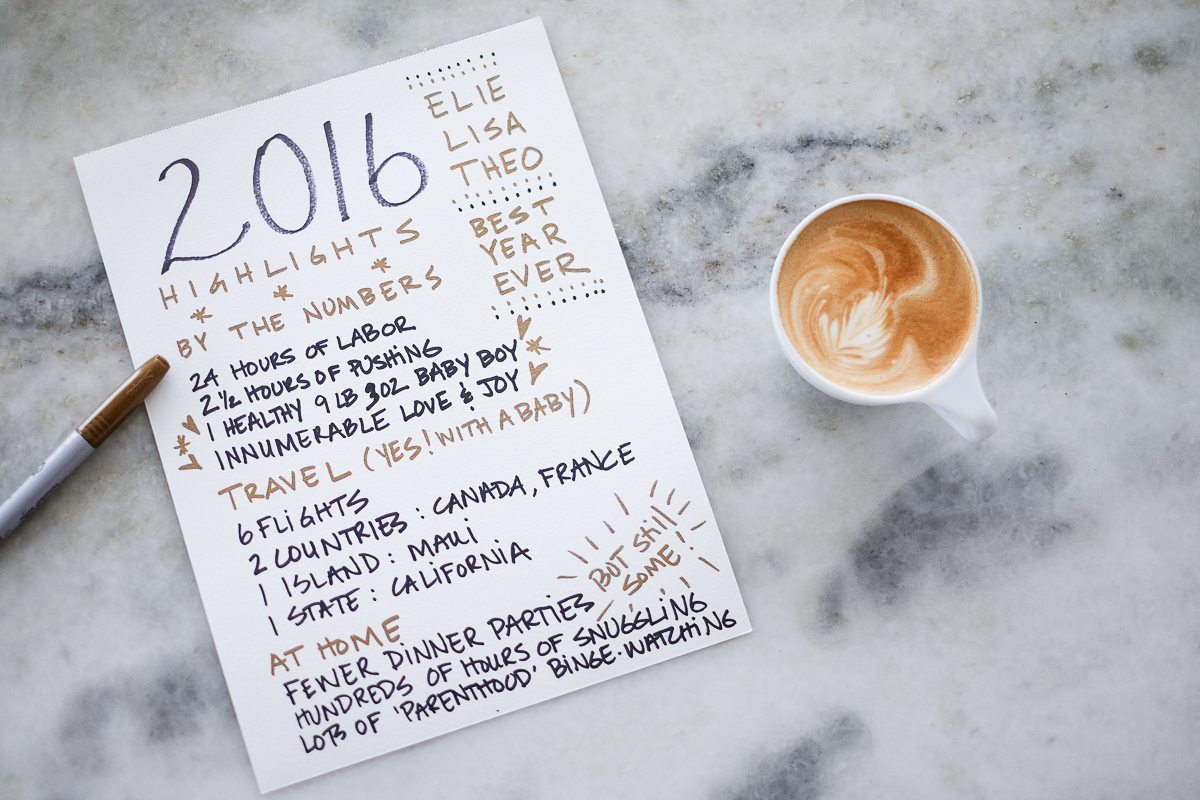 2016
HIGHLIGHTS
BY THE NUMBERS
ELIE
LISA
THEO
BEST
YEAR
EVER
24 HOURS OF LABOR
2 1/2 HOURS OF PUSHiNG
1 HEALTHY 9 LB 3OZ BABY BOY
INNUMERABLE LOVE & JOY
TRAVEL (YES! WITH A BABY)
6 FLiGHTS
2 COUNTRIES : CANADA, FRANCE
1 ISLAND : MAUi
1 STATE : CALiFORNiA
BUT STill
SOME!
AT HOME
FEWER DiNNER PARTiES
HUNDREDS OF HOURS OF SNUGGLiNG
LOTS OF 'PARENTHOOD' BiNGE-WATCHiNG